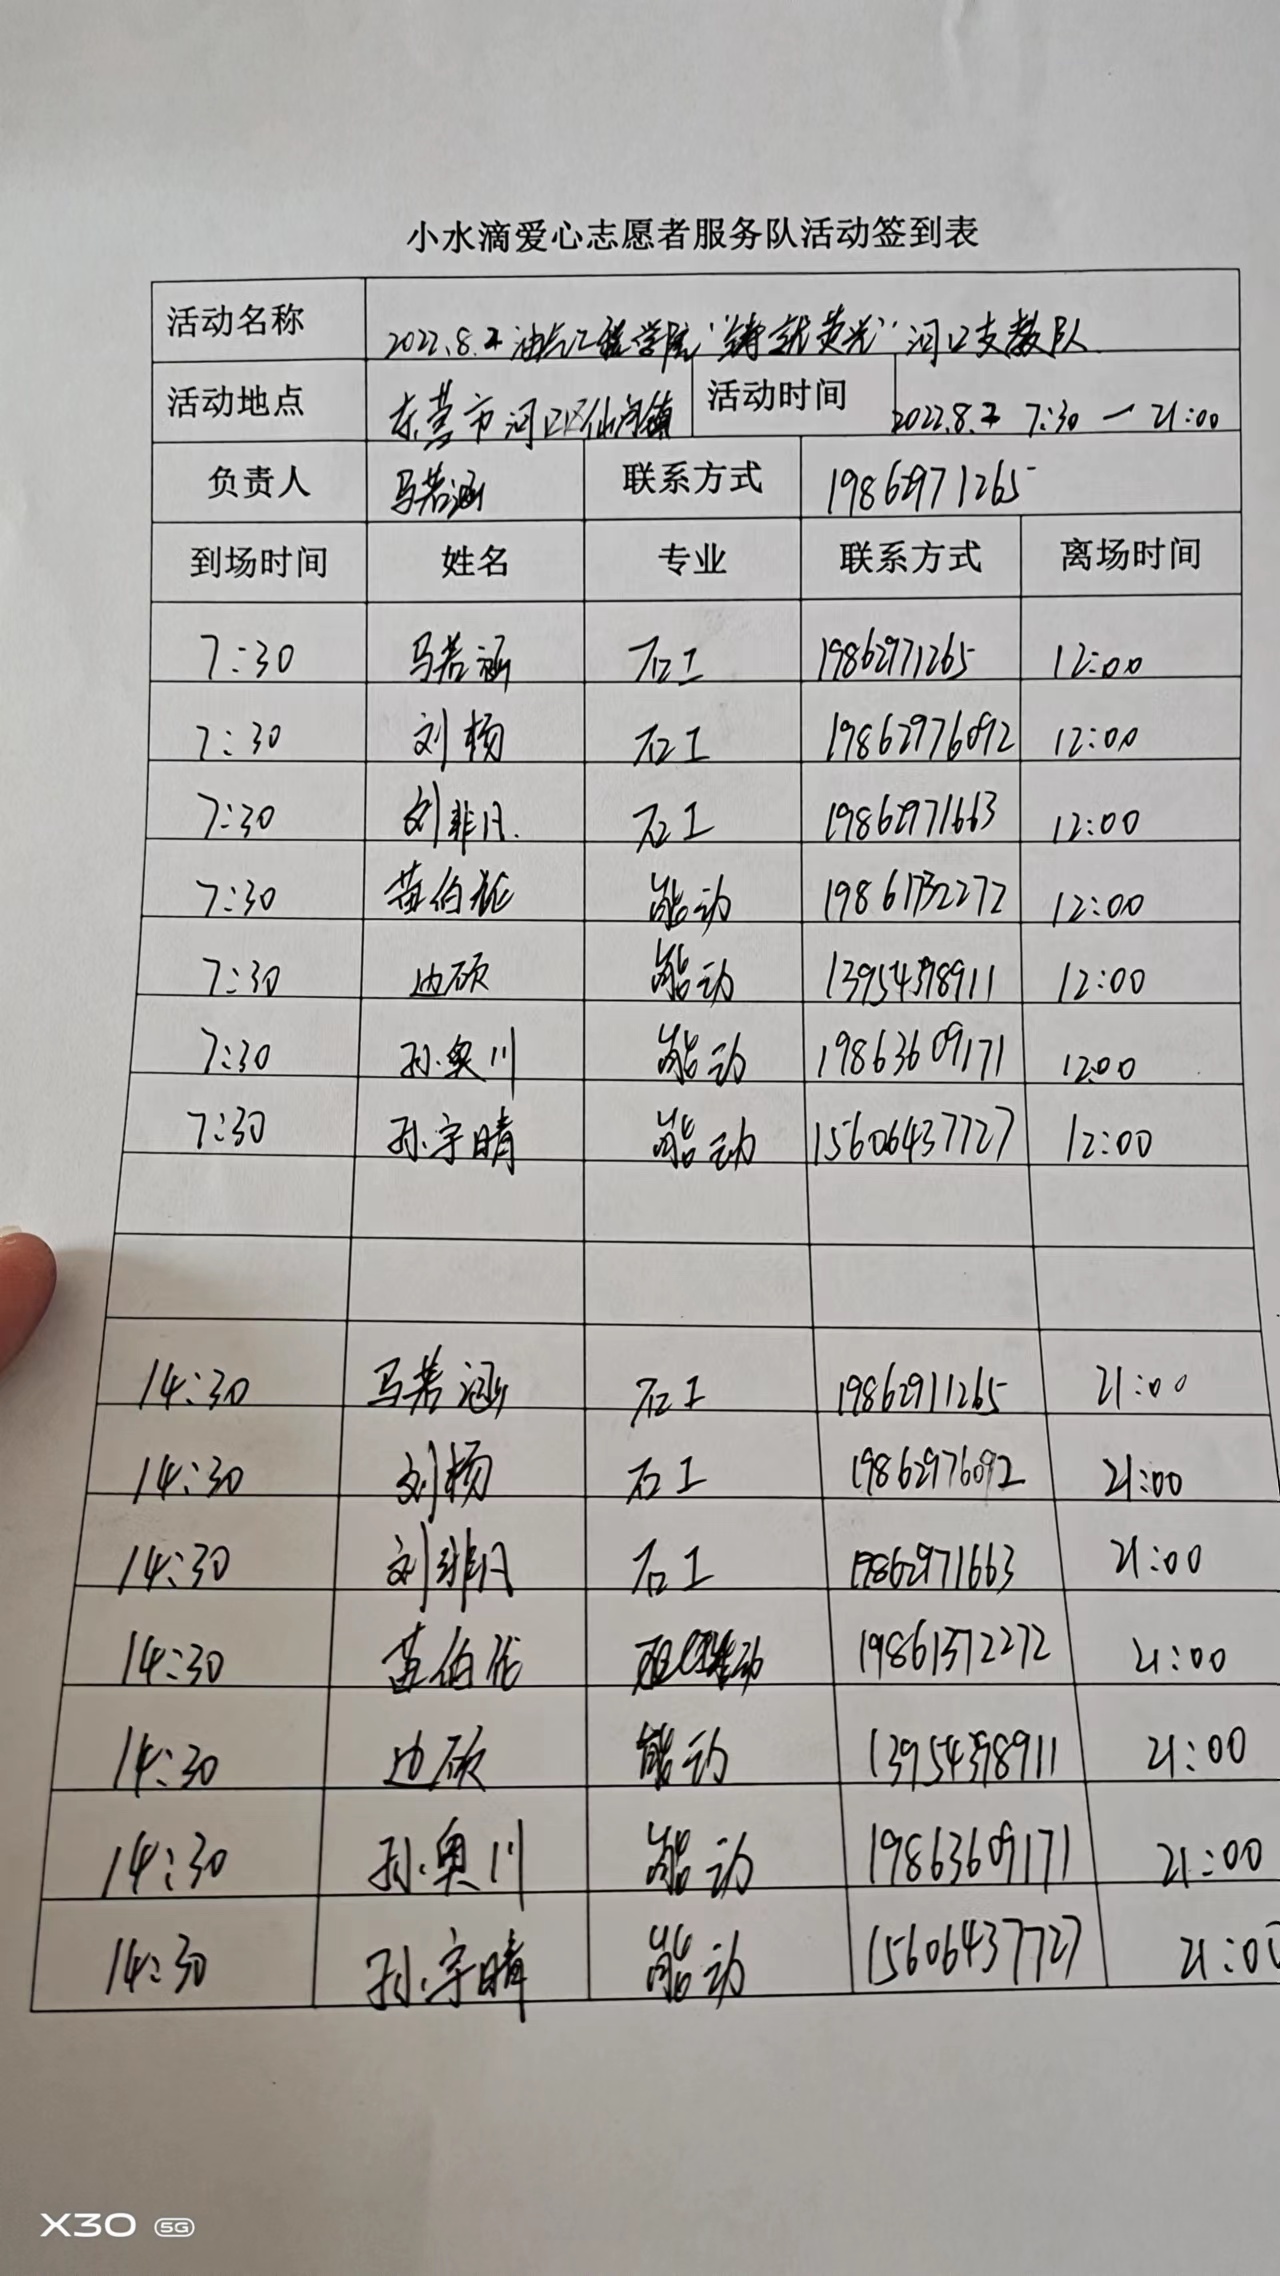 小水滴爱心志愿者服务队活动签到表
活动名称 2022.8.2 油气工程学院“铸就荧光”河口支教队
活动地点 东营市河口区仙河镇 活动时间 2022.8.2 7:30 — 21:00
负责人 马若涵 联系方式 19862971265
到场时间 姓名 专业 联系方式 离场时间
7:30 马若涵 石工 19862971265 12:00
7:30 刘杨 石工 19862976092 12:00
7:30 刘非凡 石工 19862971663 12:00
7:30 苗伯 能动 19861732272 12:00
7:30 边硕 能动 13954398911 12:00
7:30 孙奥川 能动 19863609171 12:00
7:30 孙宇晴 能动 15606437727 12:00
14:30 马若涵 石工 19862911265 21:00
14:30 刘杨 石工 19862976092 21:00
14:30 刘非凡 石工 19862971663 21:00
14:30 苗伯 动 19861372272 21:00
14:30 边硕 能动 13954398911 21:00
14:30 孙奥川 能动 19863609171 21:00
14:30 孙宇晴 能动 15606437727 21:00
X30 5G